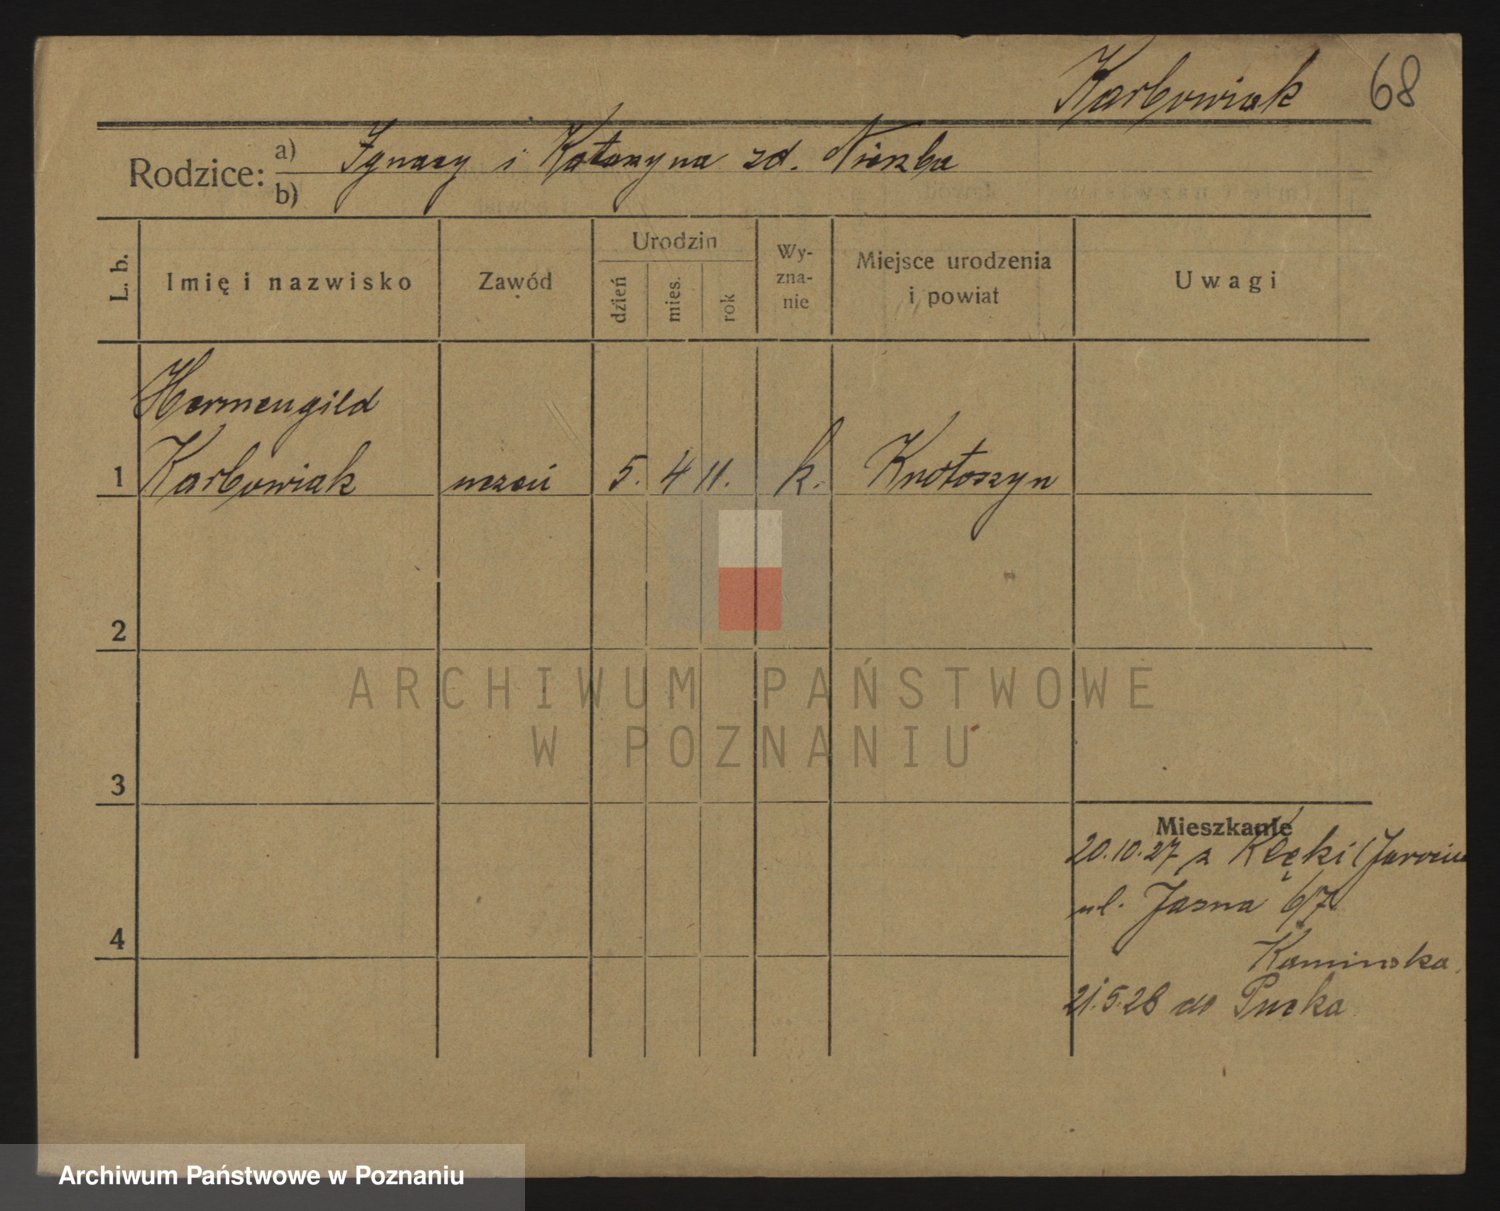 Karbowiak 68
Rodzice: a) Ignacy i Katarzyna zd. Niezba
b)
L. b. Imię i nazwisko Zawód Urodzin dzień mies. rok Wyznanie Miejsce urodzenia i powiat Uwagi
Hermengild
1 Karbowiak uczeń 5. 4 11. k. Krotoszyn
2
3
4
Mieszkanie
20.10.27 z Klęki (Jarocin
ul. Jasna 6/7
Kaminska.
21.5.28 do Pucka
ARCHIWUM PAŃSTWOWE
W POZNANIU
Archiwum Państwowe w Poznaniu